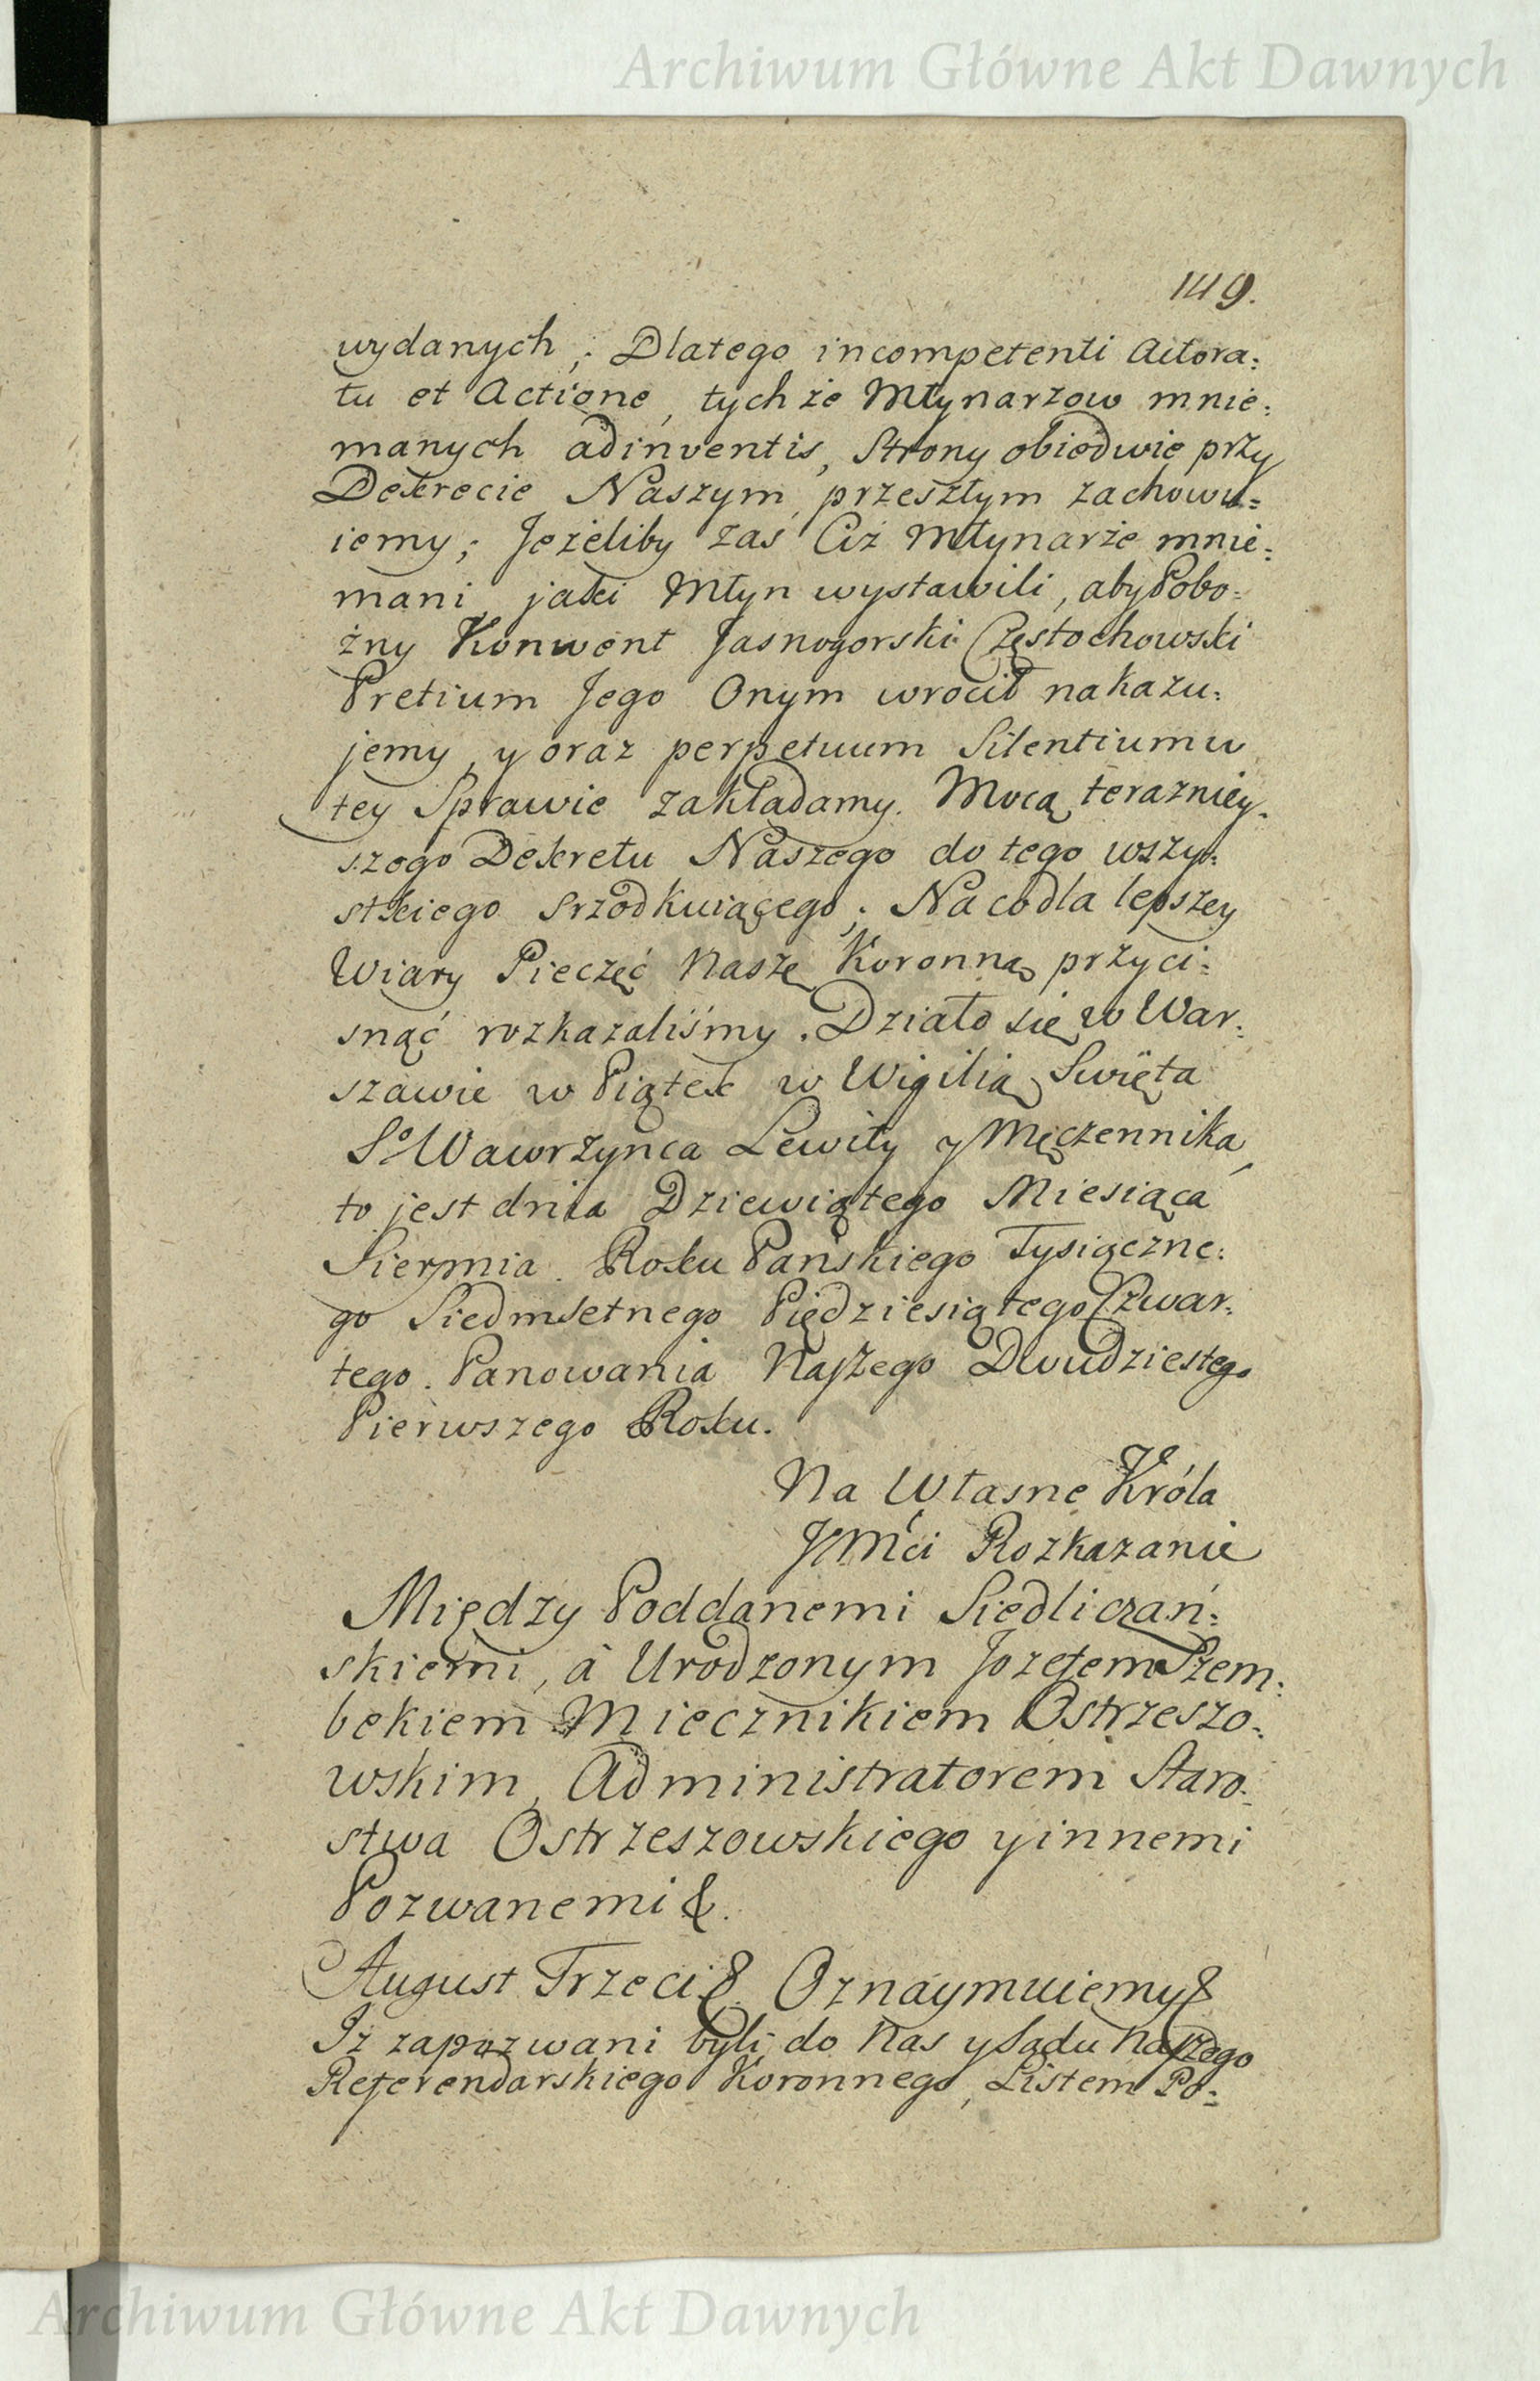 Archiwum Główne Akt Dawnych
149.
wydanych; Dlatego incompetenti Actora:
tu et Actione, tychże Młynarzow mnie:
manych adinventis, Strony obiedwie przy
Dekrecie Naszym przeszłym zachowu:
iemy; Jeżeliby zaś Ciż Młynarże mnie:
mani, jaki Młyn wystawili, aby Pobo:
żny Konwent Jasnogorski Częstochowski
Pretium Jego Onym wrocił nakazu:
jemy, y oraz perpetuum Silentium w
tey Sprawie zakładamy. Mocą terazniey:
szego Dekretu Naszego do tego wszy:
stkiego srzodkuiącego; Na co dla lepszey
Wiary Pieczęć Naszę Koronną przyci:
snąć rozkazaliśmy. Działo się w War:
szawie w Piątek w Wigilią Swięta
So Wawrzyńca Lewity y Męczennika,
to jest dnia Dziewiątego Miesiąca
Sierpnia. Roku Pańskiego Tysiączne:
go Siedmsetnego Pięćdziesiątego Czwar:
tego. Panowania Naszego Dwudziestego
Pierwszego Roku.
Na Własne Króla
JEMći Rozkazanie
Między Poddanemi Siedliczań:
skiemi, à Urodzonym Jozefem Szem:
bekiem Miecznikiem Ostrzeszo:
wskim, Administratorem Staro:
stwa Ostrzeszowskiego y innemi
Pozwanemi &.
August Trzeci &. Oznaymuiemy &
Iz zapozwani byli do Nas y Sądu Naszego
Referendarskiego Koronnego, Listem Po:
Archiwum Główne Akt Dawnych